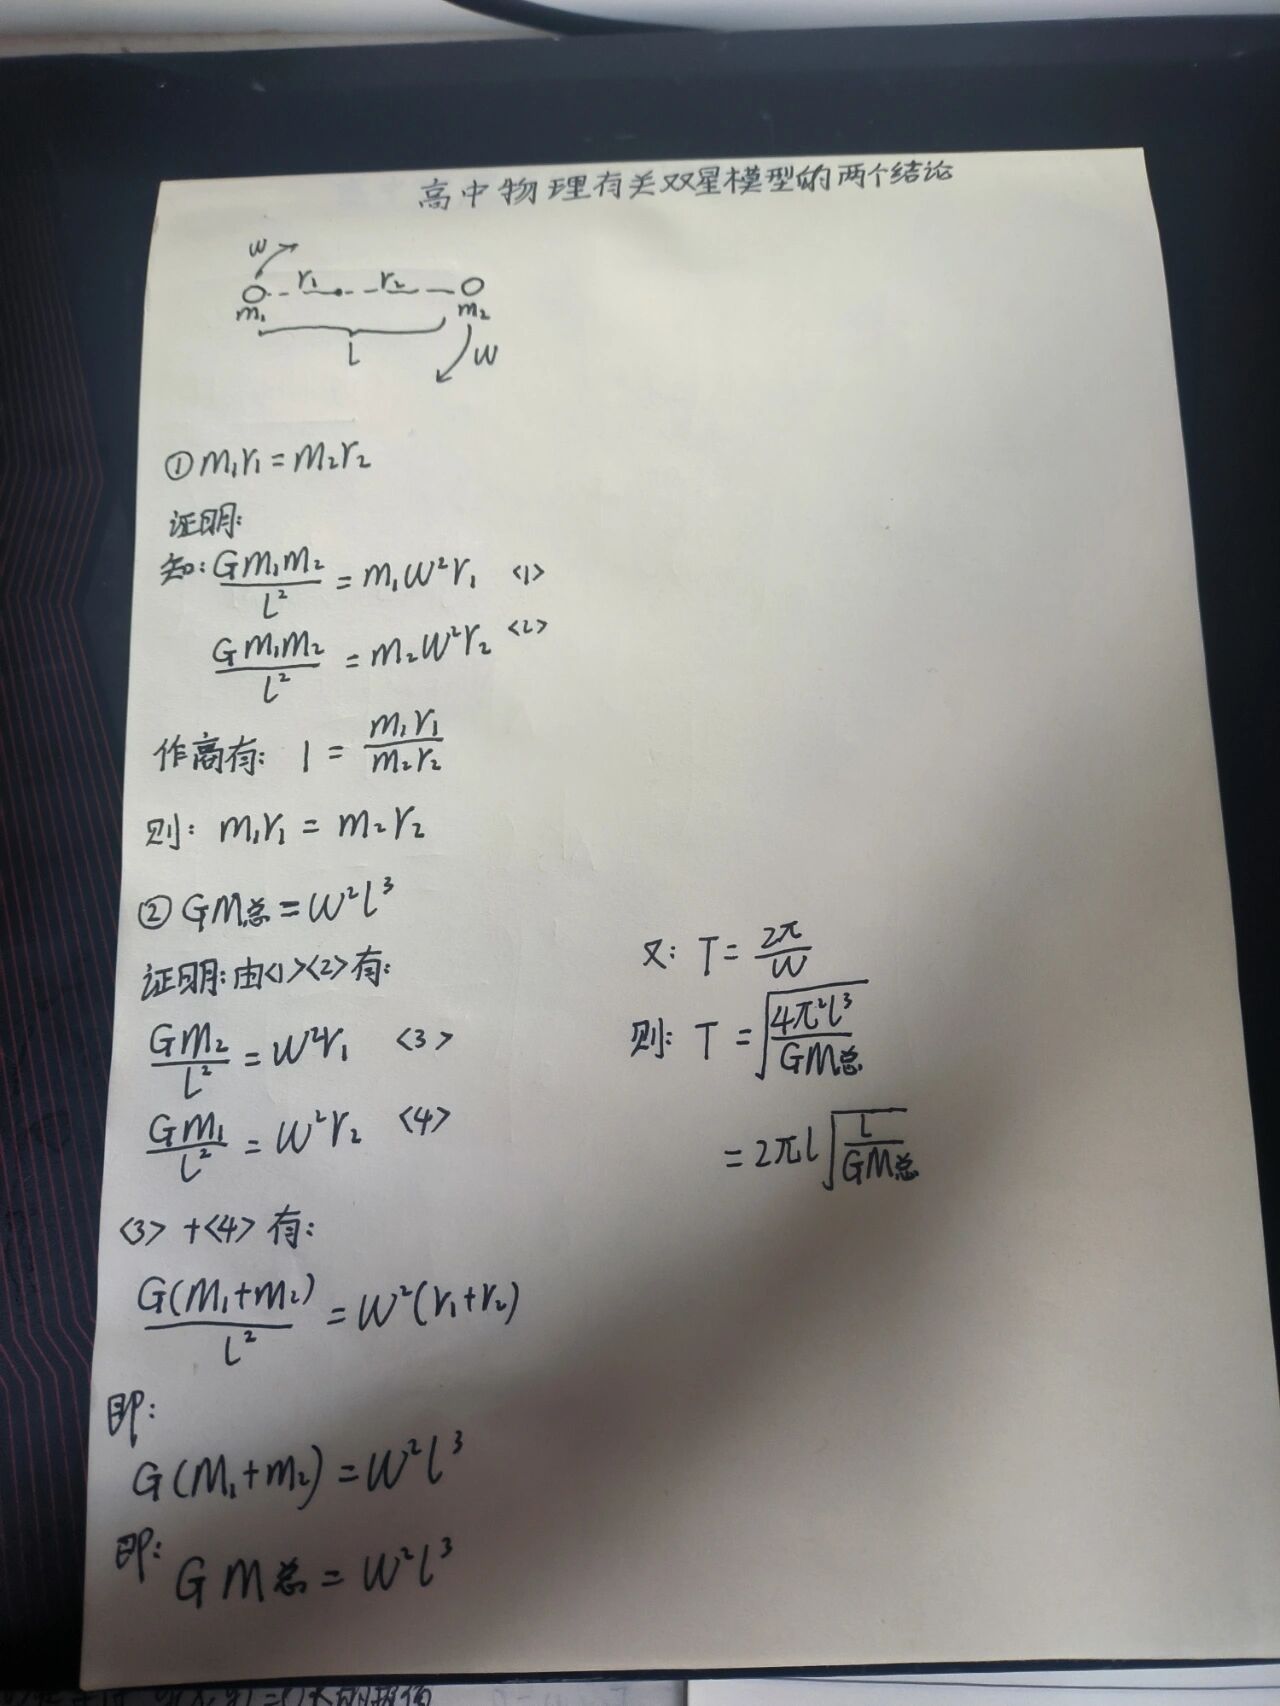 高中物理有关双星模型的两个结论
w
r₁ r₂
m₁ m₂
l
w
①m₁r₁=m₂r₂
证明:
知: Gm₁m₂/l² = m₁w²r₁ <1>
Gm₁m₂/l² = m₂w²r₂ <2>
作商有: 1 = m₁r₁/m₂r₂
则: m₁r₁ = m₂r₂
② GM总=w²l³
证明:由<1><2>有:
Gm₂/l² = w²r₁ <3>
Gm₁/l² = w²r₂ <4>
<3>+<4>有:
G(m₁+m₂)/l² = w²(r₁+r₂)
即:
G(m₁+m₂)=w²l³
即: GM总=w²l³
又: T=2π/w
则: T=√(4π²l³/GM总)
=2πl√(l/GM总)